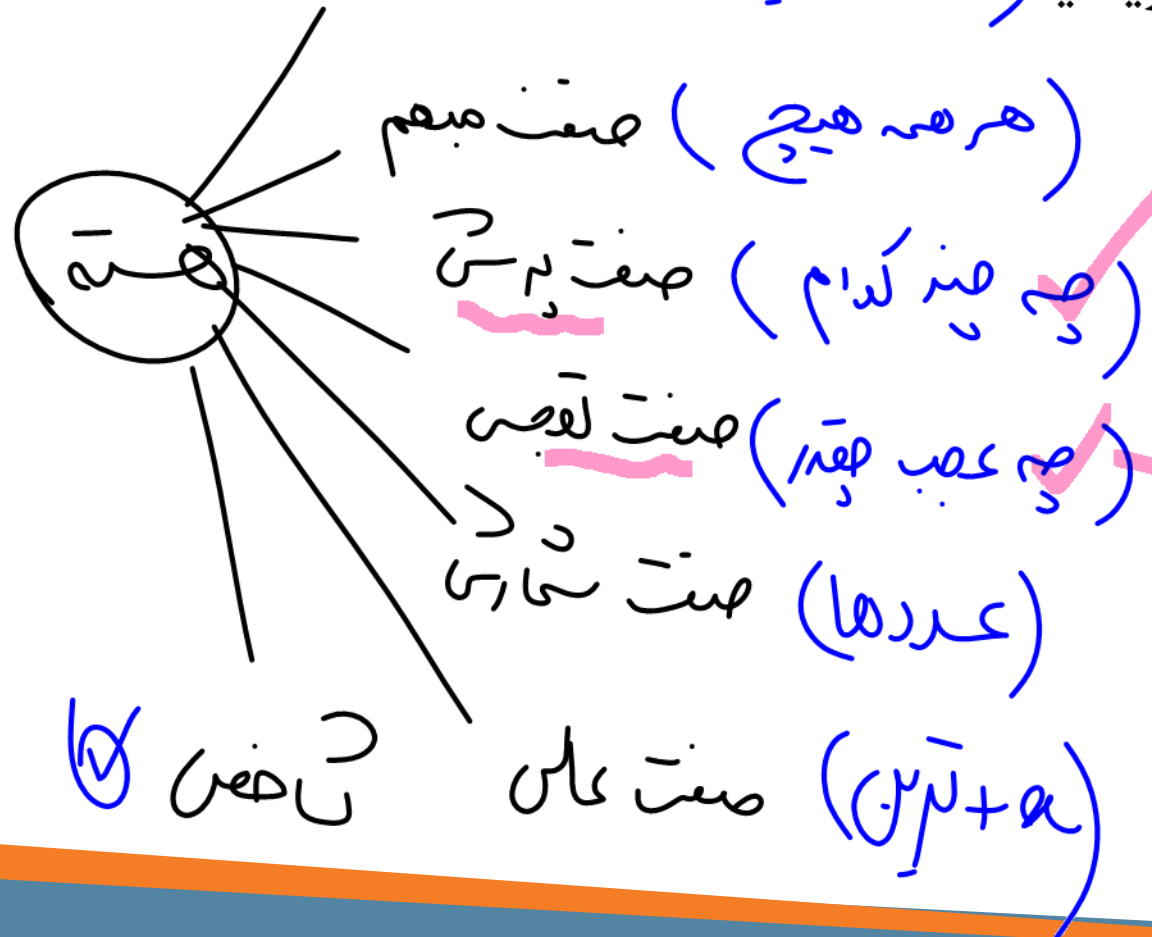 صفت مبهم (هر همه هیچ)
صفت پرسشی (چه چند کدام)
صفت تعجبی (چه عجب چقدر)
صفت شمارشی (عددها)
صفت عالی (a + ترین)
شاخص
هسته